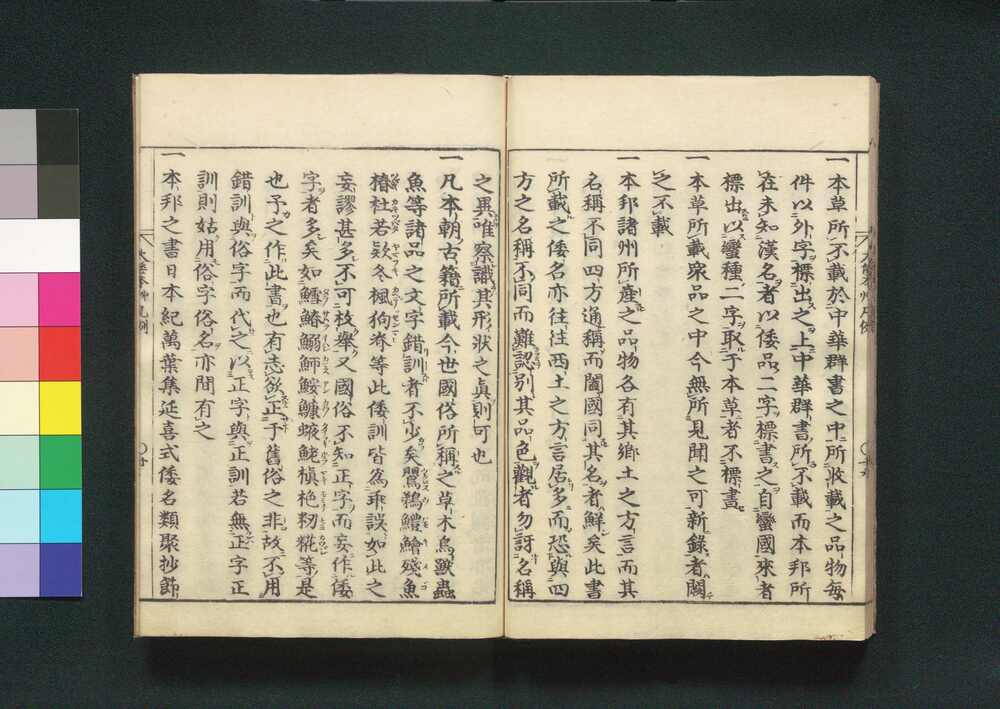 一本草所不載於中華群書之中所收載之品物毎
件以外字標出之上中華群書所不載而本邦所
在未知漢名者以倭品二字標書之自蠻國來者
標出以蠻種二字取于本草者不標書
一本草所載衆品之中今無所見聞之可新錄者闕
之不載
一本邦諸州所産之品物各有其鄕土之方言而其
名稱不同四方通稱而闔國同其名者鮮矣此書
所載之倭名亦往往西土之方言居多而恐與四
方之名稱不同而難認別其品色觀者勿訝名稱
之異唯察識其形状之眞則可也
一凡本朝古籍所載今世國俗所稱之草木鳥獸蟲
魚等諸品之文字錯訓者不少矣鸎鵜鱧鱠殘魚
椿杜若欵冬楓狗脊等此倭訓皆為乖誤如此之
妄謬甚多不可枚擧又國俗不知正字而妄作倭
字者多矣如鱈鰆鰯鰤鮟鱇𧍗𩶤槙栬籾糀等是
也予之作此書也有志欲正于舊俗之非故不用
錯訓與俗字而代之以正字與正訓若無正字正
訓則姑用俗字俗名亦間有之
一本邦之書日本紀萬葉集延喜式倭名類聚抄節